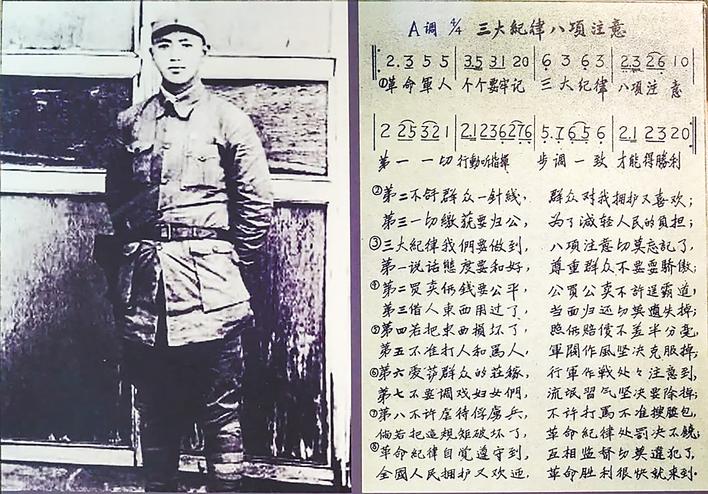 A调 4/4 三大紀律八項注意
2. 3 5 5 | 3 5 3 1 2 0 | 6 3 6 3 | 2 3 2 6 1 0
①革命軍人 个个要牢记 三大紀律 八項注意
2 2 5 3 2 1 | 2. 1 2 3 6 2 7 6 | 5. 7 6 5 6 | 2. 1 2 3 2 0
第一一切行動听指揮 步调一致 才能得勝利
②第二不許群众一針綫， 群众对我拥护又喜欢；
第三一切繳获要归公， 为了減轻人民的負担；
③三大紀律我們要做到， 八項注意切莫忘記了，
第一说话態度要和好， 尊重群众不要耍驕傲；
④第二買卖价錢要公平， 公買公卖不許逞霸道，
第三借人東西用过了， 当面归还切莫遺失掉；
⑤第四若把東西損坏了， 照价賠償不差半分毫，
第五不准打人和罵人， 軍閥作風坚决克服掉；
⑥第六爱护群众的莊稼， 行軍作戦处々注意到，
第七不要调戏妇女們， 流氓習气坚决要除掉；
⑦第八不许虐待俘虜兵， 不许打罵不准搜腰包，
倘若把这規矩破坏了， 革命紀律处罚决不饒；
⑧革命紀律自覚遵守到， 互相监督切莫違犯了，
全國人民拥护又欢迎， 革命勝利很快就来到.